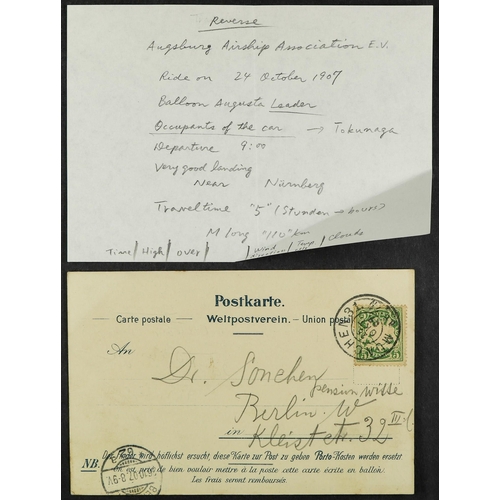 Reverse
Augsburg Airship Association E.V.
Ride on 24 October 1907
Balloon Augusta Leader
Occupants of the car → Tokunaga
Departure 9:00
Very good landing
Near Nürnberg
Travel time "5" (Stunden → hours)
M long "120" km
Time / High / over / / Wind / Temp / Clouds
Postkarte.
Carte postale — Weltpostverein. — Union postale
An
Dr. Sonchen
pension Witte
Berlin. W
in Kleiststr. 32 III
NB. höflichst ersucht, diese Karte zur Post zu geben Porto-Kosten werden ersetzt
On est prié de bien vouloir mettre à la poste cette carte écrite en ballon.
Les frais seront remboursés.